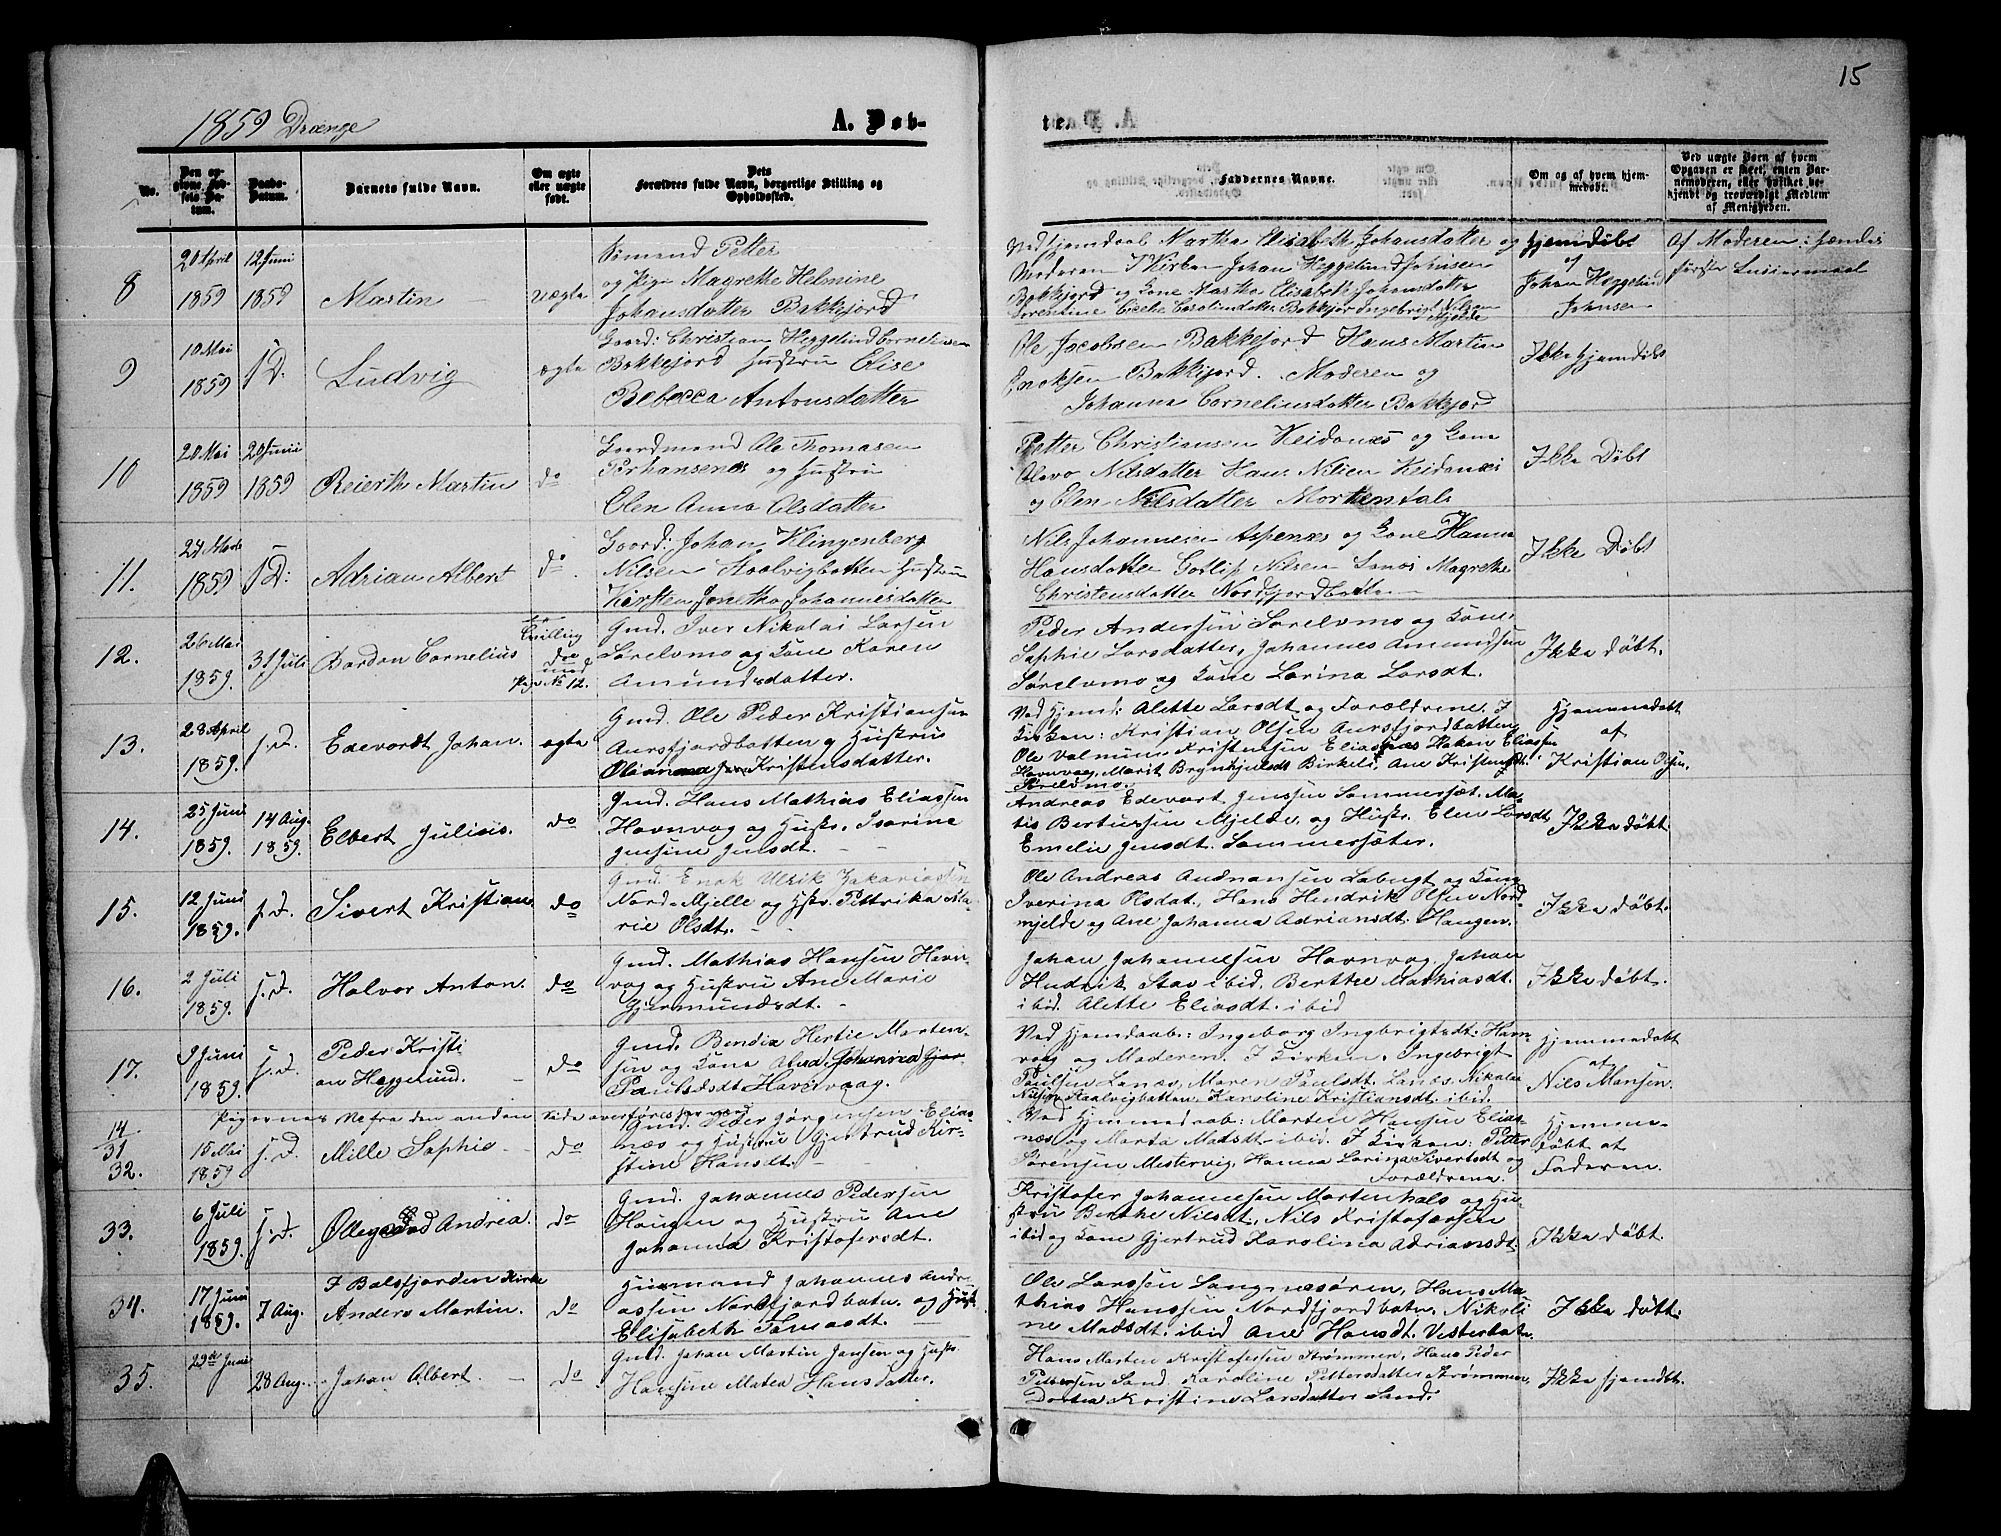 15
1859 Drænge
A. Døb-
te.
No.
Den op-
givne Fød-
sels Da-
tum.
Daabs-
Datum.
Barnets fulde Navn.
Om ægte
eller uægte
født.
Dets
Forældres fulde Navn, borgerlige Stilling og
Opholdssted.
Faddernes Navne.
Om og af hvem hjem-
medøbt.
Ved uægte Børn af hvem
Opgaven er skeet, enten Bar-
nemoderen, eller hvilket be-
kjendt og troværdigt Medlem
af Menigheden.
8
20 April
1859
12 Juni
1859
Martin
Uægte
Petter
og Pige Magrethe Helmine
Johansdatter Bakkejord
Ved hjemdaab Martha Elisabeth Johansdatter og
Moderen I Kirken Johan Heggelund Johnsen
Bakkejord og Kone Martha Elisabeth Johansdatter
hjemdøbt
af
Johan Heggelund
Johnsen
Af Moderen: hendes
første Leiermaal
9
10 Mai
1859
J D.
Ludvig
ægte
Goord: Christian Heggelund Cornelissen
Bakkejord Hustru Elise
Rebecca Antonsdatter
Ole Jacobsen Bakkejord Hans Martin
Enoksen Bakkejord. Moderen og
Johanna Corneliusdatter Bakkejord
Ikke hjemdøbt
10
20 Mai
1859
20 Junii
1859
Reierth Martin
do
Goordmand Ole Thomasen
og Hustru
Elen Anna Olsdatter
Petter Christiansen Keidenæs og Kone
Olava Nilsdatter Hans Nilsen Keidenæs
og Elen Nilsdatter Mortenhals
Ikke Døbt
11.
1859
J D:
Adrian Albert
do
Goord: Johan Klingenberg
Nilsen Skoolvigbotten Hustru
Kirsten Jonetha Johannesdatter
Nils Johannesen Aspenæs og Kone Hanna
Hansdatter Gotlip Nilsen Lanæs Magrethe
Christensdatter Nordfjordbotten
Ikke Døbt
12.
26 Mai
1859.
31 Juli
Dordon Cornelius
Tvilling
do
med
Pige No 12.
Gmd. Iver Nikolai Larsen
Sørelvmo og Kone Karen
Amundsdatter.
Peder Andersen Sørelvmo og Kone
Sophie Larsdatter, Johannes Amundsen
Sørelvmo og Kone Larina Larsdt.
Ikke døbt.
13.
28 April
1859.
J. D.
Edevardt Johan.
ægte
Gmd. Ole Peder Kristiansen
Aursfjordbotten og Hustru
Olianna Kristensdatter.
Ved Hjemd: Alette Larsdt og Forældrene. I
Kirken: Kristian Olsen Aursfjordbotten,
Ole Valmun Kristensen Eliasnæs Hakon Eliassen
Havnvag, Marit Brynhjulsdt Birkeli, Ane Kristensdt.
Sørelvmo.
Hjemmedøbt
af
Kristian Olsen.
14.
25 Juni
1859.
14 Aug.
1859.
Elbert Julius.
do
Gmd. Hans Mathias Eliassen
Havnvag og Hustr. Isarine
Jensine Jensdt.
Andreas Edevart Jenssen Sommersæt. Ma-
tis Bertussen Mjelde, og Hustr. Elen Larsdt
Emelie Jensdt. Sommersæter.
Ikke døbt
15.
12 Juni
1859.
J. D.
Sivert Kristian
do
Gmd. Enok Ulrik Zakariassen
Nord-Mjelle og Hstr. Pettrika Ma-
rie Olsdt.
Ole Andreas Andreassen Labugt og Kone
Iverina Olsdat, Hans Hendrik Olsen Nord-
mjelde og Ane Johanna Adriansdt. Haugen.
Ikke døbt.
16.
2 Juli
1859.
J. D.
Halvor Anton.
do
Gmd. Mathias Hansen Havn-
vag og Hustru Ane Marie
Gjermundsdt.
Johan Johannessen Havnvag. Johan
Hendrik Stav ibid. Berthe Mathiasdt.
ibid. Alette Eliasdt. ibid
Ikke døbt.
17.
9 Juni
1859.
J. D.
Peder Kristi
an Heggelund.
do
Gmd. Bendix Hertie Morten-
sen og Kone Johanna
Paulsdt Havnvaag.
Ved Hjemdaab: Ingeborg Ingbrigtsdt. Havn-
vaag og Moderen. I Kirken. Ingebrigt
Paulsen Lanæs, Maren Paulsdt. Lanæs. Nikolai
Nilsen Skaalvigbotten, Karoline Kristiansdt. ibid.
Hjemmedøbt
af
Nils Monsen.
Pigernes No fra den anden Side overføres her med
14
31
32.
15 Mai
1859
J. D.
Mille Sophie
do
Gmd. Peder Jørgensen Elias-
næs og Hustru Gjertrud Kir-
stine Hansdt.
Ved Hjemmedaab: Morten Hansen Elias-
næs og Marda Madsdt. ibid. I Kirken: Petter
Sørensen Mestervig, Hanna Larina Sivertsdt og
Forældrene.
Hjemme-
døbt af
Faderen.
33.
6 Juli
1859.
J. D.
Andrea.
do
Gmd. Johannes Pedersen
Haugen og Hustru Ane
Johanna Kristofersdt.
Kristofer Johannessen Mortenhals og Hu-
stru Berthe Nilsdt, Nils Kristofersen
ibid og Kone Gjertrud Karolina Adriansdt.
Ikke døbt.
34.
17 Juni
1859.
7 Aug.
I Balsfjorden Kirke
Anders Martin.
do
Huusmand Johannes Andre-
assen Nordfjordbotn. og Hust.
Elisabeth Tomasdt.
Ole Larssen Langnæsøren, Hans Ma-
thias Hanssen Nordfjordbotn. Nikoli
ne Madsdt. ibid Ane Hansdt. Vesterbotn.
Ikke døbt.
35.
29de Juni
28 Aug.
Johan Albert.
do
Gmd. Johan Martin Jansen og Hust.
Hansine Matea Hansdatter.
Hans Morten Kristofersen Strømmen, Hans Peder
Petersen Sand, Karoline Pettersdatter Strømmen
Dortea Kristine Larsdatter Sand.
Ikke hjemdbt.